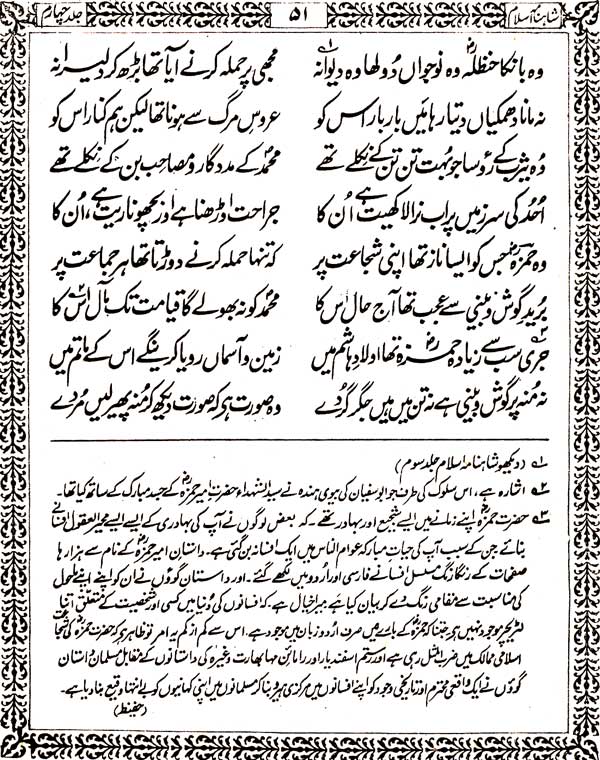 شاہنامۂ اسلام ۵۱ جلد چہارم
وہ بانکا حنظلہؓ وہ نوجواں دُولھا وہ دیوانہ ۱؎ مجھی پر حملہ کرنے آیا تھا بڑھ کر دلیرانہ
نہ مانا دھمکیاں دیتا رہا میں بار بار اس کو عروسِ مرگ سے ہونا تھا لیکن ہم کنار اس کو
وُہ یثرب کے رؤسا جو بہت تن تن کے نکلے تھے محمدؐ کے مددگار و مصاحب بن کے نکلے تھے
اُحد کی سرزمیں پر اب نرالا کھیت ہے اُن کا جراحت اوڑھنا ہے اور بچھونا ریت ہے، اُن کا
وہ حمزہؓ جس کو ایسا ناز تھا اپنی شجاعت پر کہ تنہا حملہ کرنے دوڑتا تھا ہر جماعت پر
بُریدِ گوش و بینی سے عجب تھا آج حال اس کا محمدؐ کو نہ بھولے گا قیامت تک مآل اس کا ۲؎
جری سب سے زیادہ حمزہؓ تھا اولادِ ہاشم میں ۳؎ زمین و آسماں رویا کرینگے اس کے ماتم میں
نہ منہ پر گوش و بینی ہے نہ تن میں ہیں جگر گُردے وہ صورت ہے کہ صورت دیکھ کر مُنہ پھیر لیں مُردے
۱؎ (دیکھو شاہنامہ اسلام جلد سوم)
۲؎ اشارہ ہے، اس سلوک کی طرف جو ابوسفیان کی بیوی ہندہ نے سید الشہداء حضرت امیر حمزہؓ کے جسدِ مبارک کے ساتھ کیا تھا۔
۳؎ حضرت حمزہؓ اپنے زمانے میں ایسے شجیع اور بہادر تھے۔ کہ بعض لوگوں نے آپ کی بہادری کے ایسے ایسے محیر العقول افسانے
بنائے جن کے سبب آپ کی حیات مبارکہ عوام الناس میں ایک افسانہ بن گئی ہے۔ داستان امیر حمزہؓ کے نام سے ہزارہا
صفحات کے رنگا رنگ مسلسل افسانے فارسی اور اردو میں لکھے گئے۔ اور داستان گوؤں نے ان کو اپنے اپنے ماحول
کی مناسبت سے مقامی رنگ دے کر بیان کیا ہے میرا خیال ہے۔ کہ افسانوں کی دُنیا میں کسی اور شخصیت کے متعلق اتنا
لٹریچر موجود نہیں ہے جتنا کہ حمزہؓ کے بارے میں صرف اُردو زبان میں موجود ہے۔ اس سے کم از کم یہ امر تو ظاہر ہے کہ حضرت حمزہؓ کی شجاعت
اسلامی ممالک میں ضرب المثل رہی ہے اور رستم اسفندیار اور رامائن مہا بھارت وغیرہ کی داستانوں کے مقابل مسلمان داستان
گوؤں نے ایک واقعی محترم اور تاریخی وجود کو اپنے افسانوں میں مرکزی ہیرو بنا کر مسلمانوں میں اپنی کہانیوں کو بے انتہا وقیع بنا دیا ہے۔
(حفیظ)